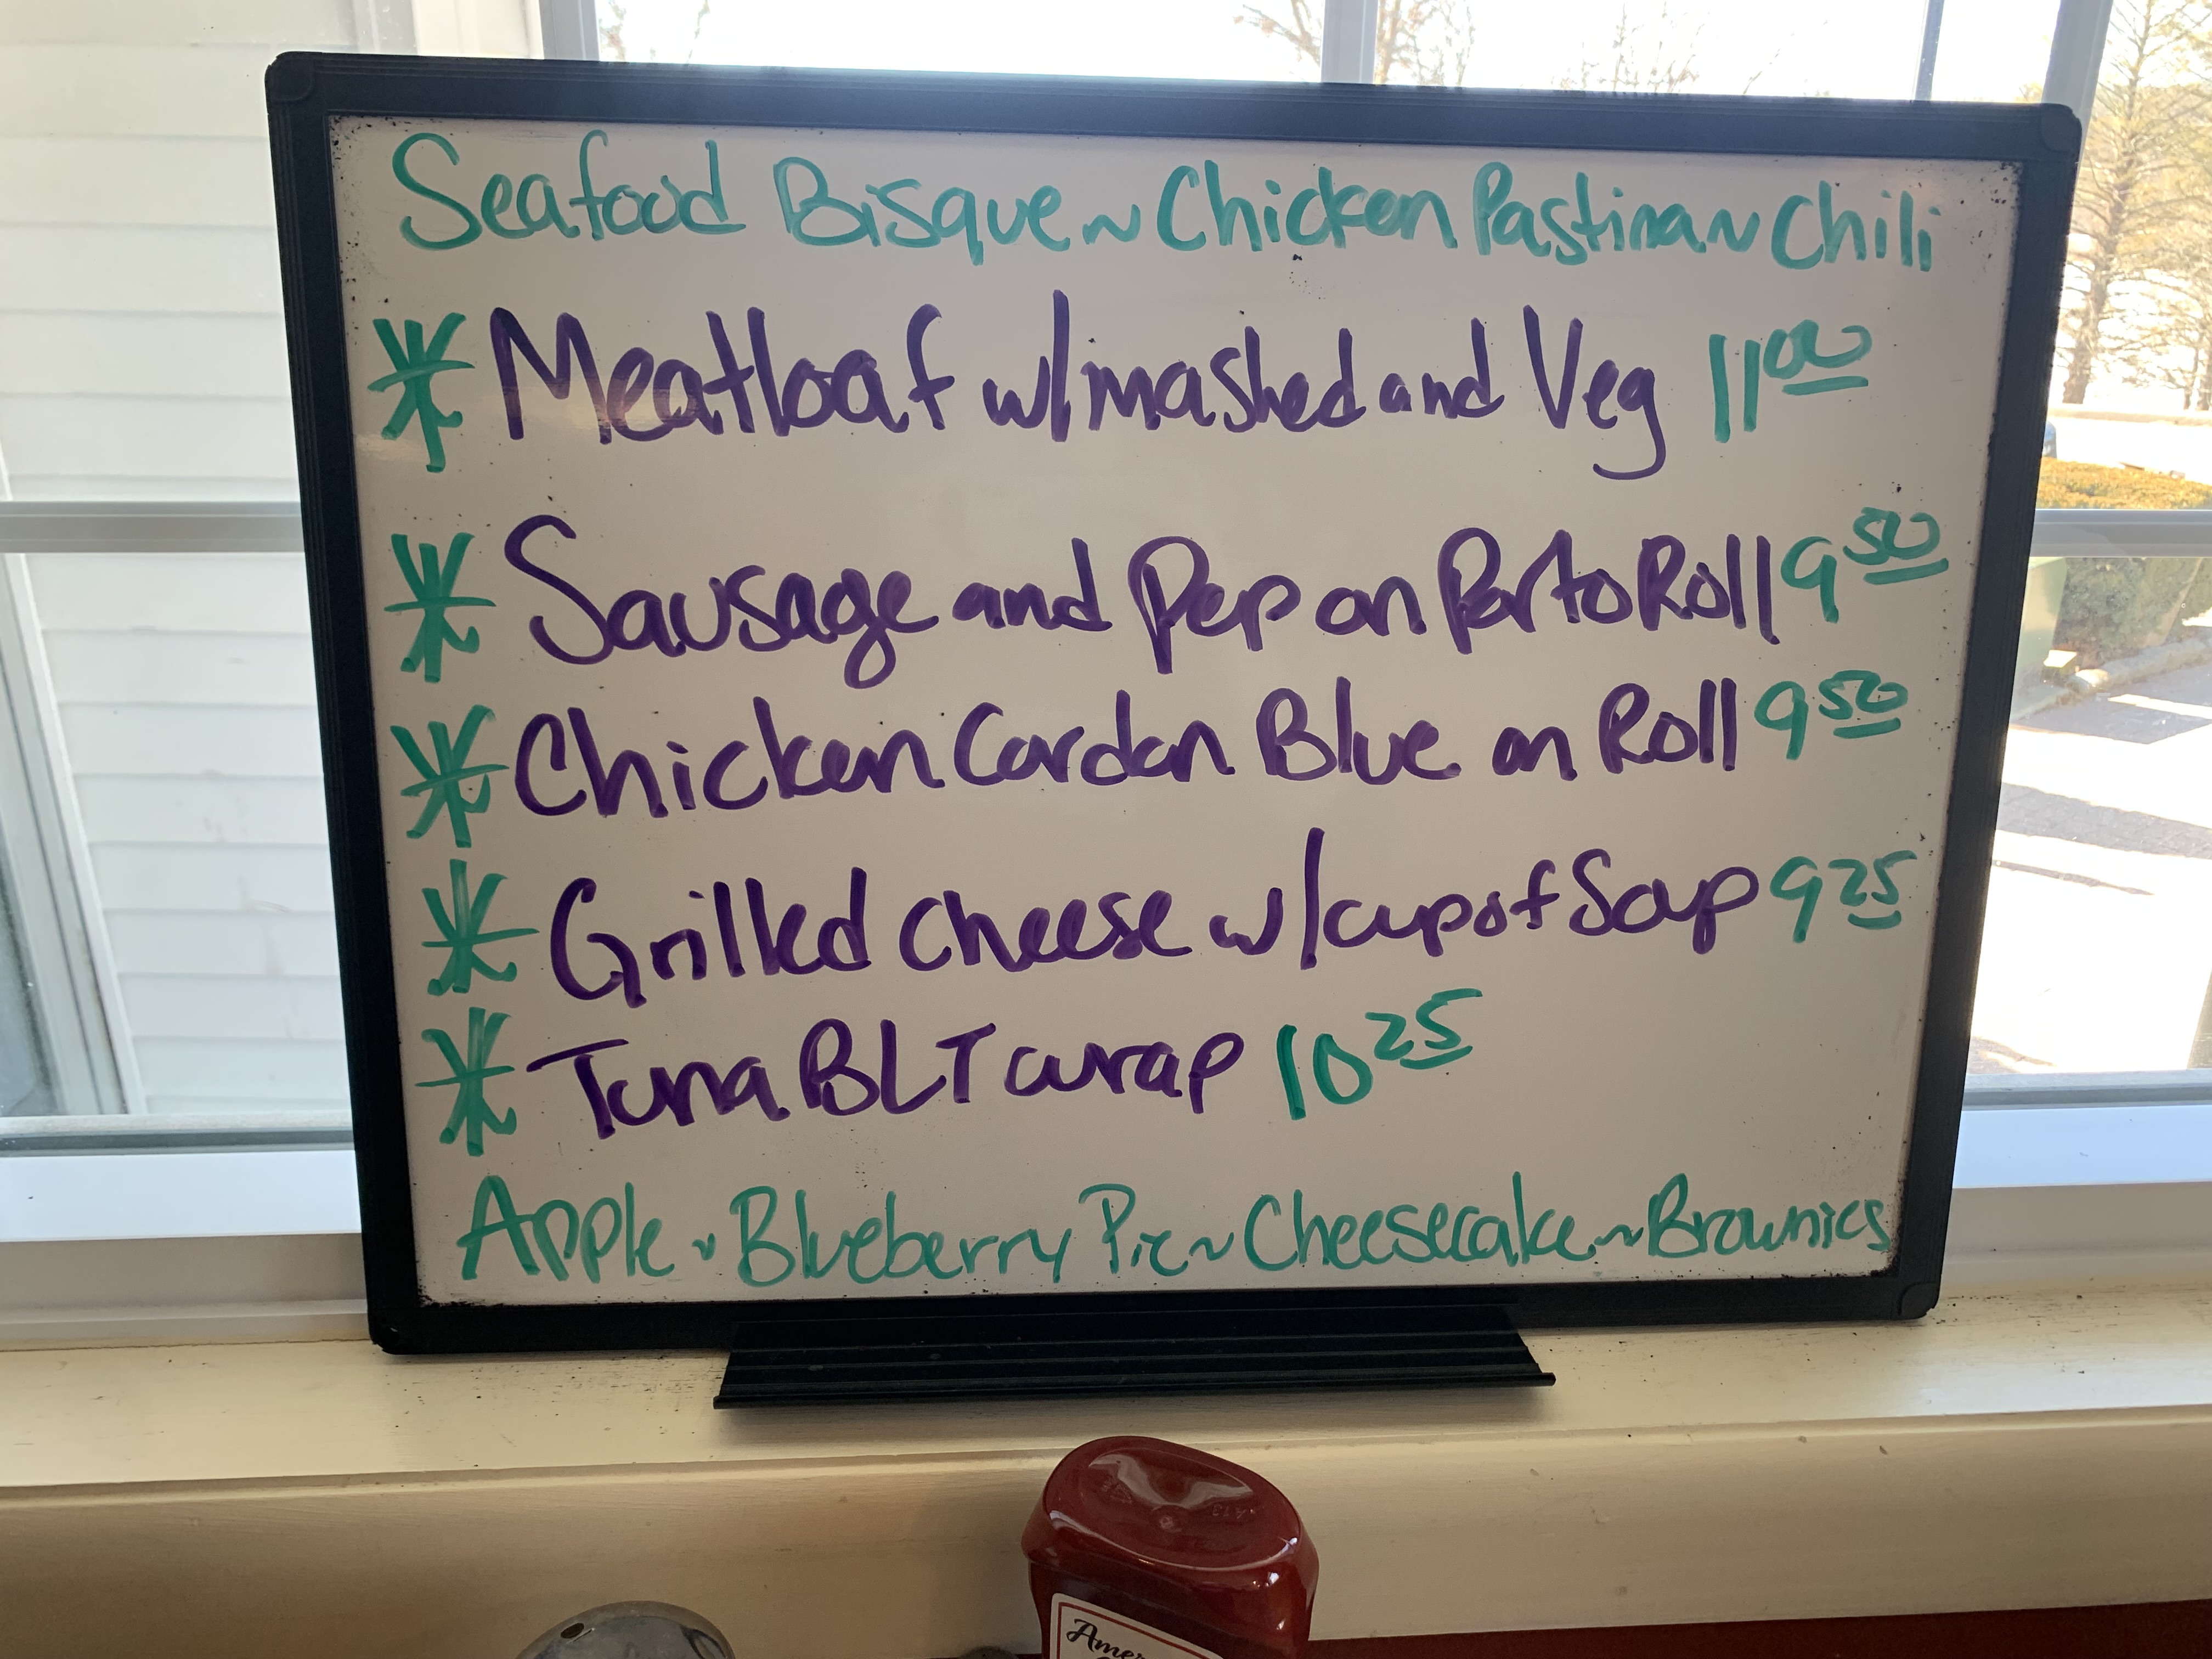 Seafood Bisque ~ Chicken Pastina ~ Chili
* Meatloaf w/mashed and Veg 11.00
* Sausage and Pep on Porto Roll 9.50
* Chicken Cordon Blue on Roll 9.50
* Grilled cheese w/cup of Soup 9.25
* Tuna BLT wrap 10.25
Apple ~ Blueberry Pie ~ Cheesecake ~ Brownies